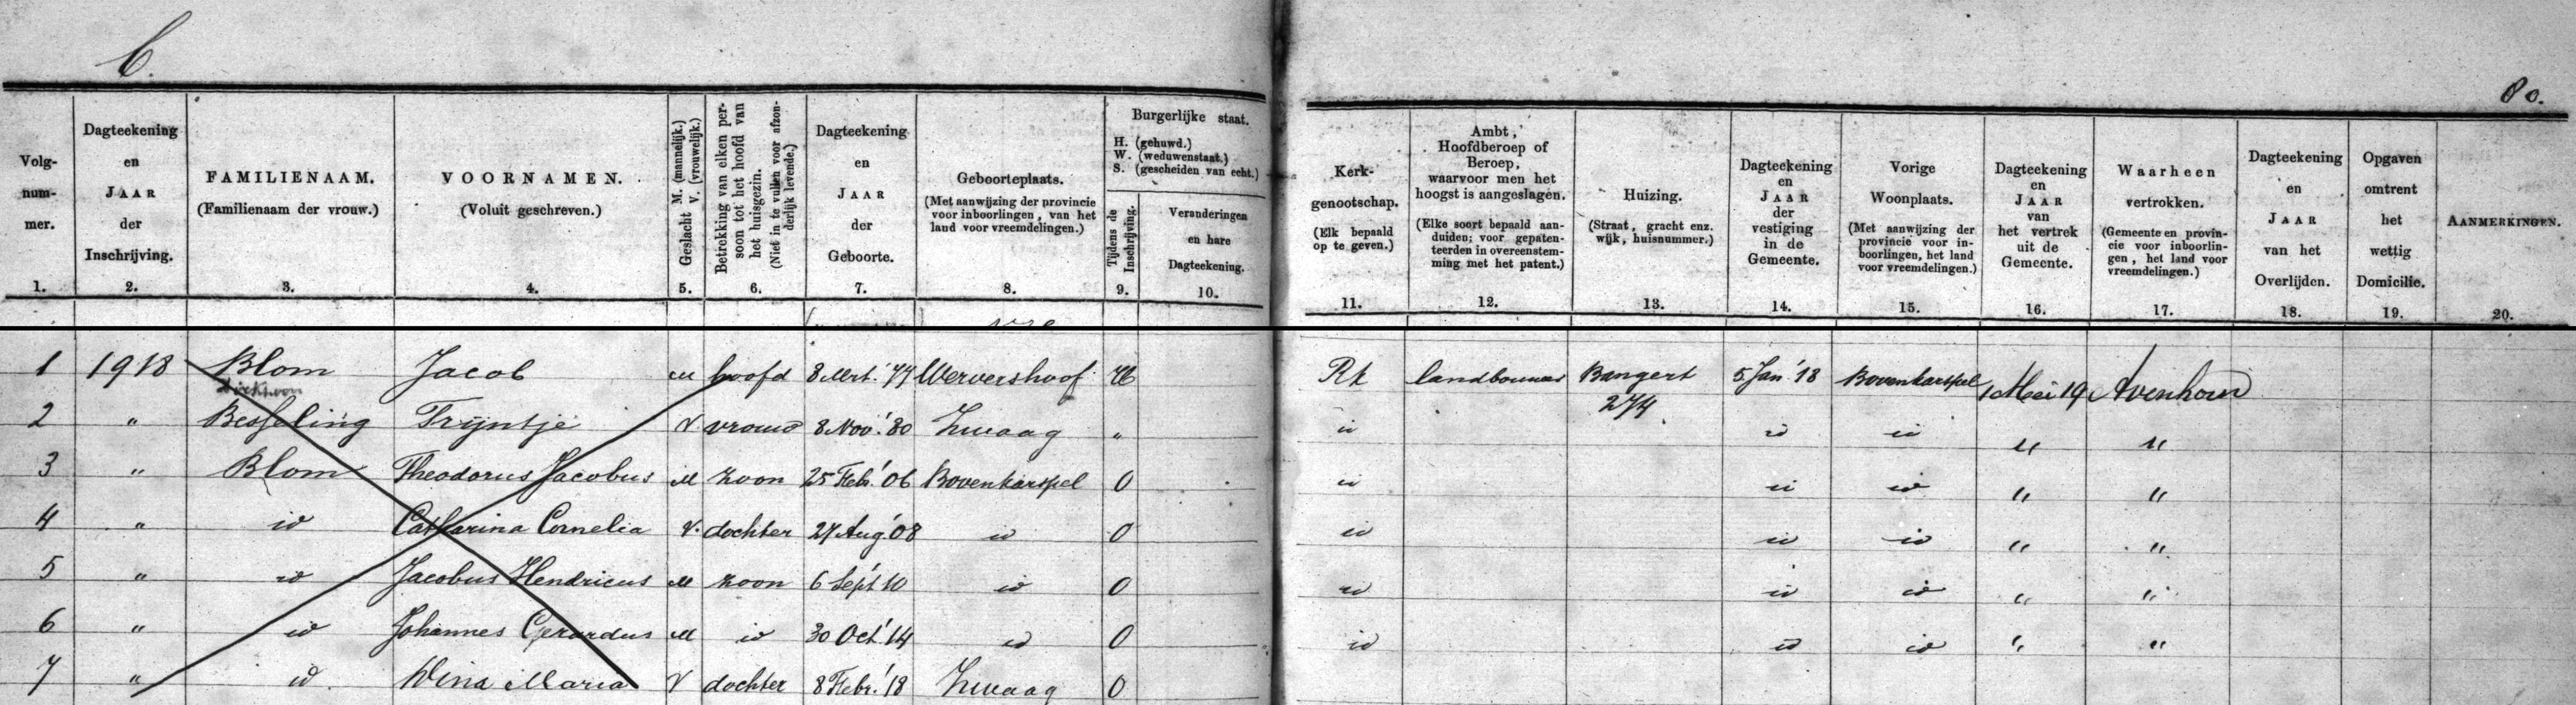 C.
80.
Volgnummer. 1.
Dagteekening en JAAR der Inschrijving. 2.
FAMILIENAAM. (Familienaam der vrouw.) 3.
VOORNAMEN. (Voluit geschreven.) 4.
Geslacht M. (mannelijk.) V. (vrouwelijk.) 5.
Betrekking van elken persoon tot het hoofd van het huisgezin. (Niet in te vullen voor afzonderlijk levende.) 6.
Dagteekening en JAAR der Geboorte. 7.
Geboorteplaats. (Met aanwijzing der provincie voor inboorlingen, van het land voor vreemdelingen.) 8.
Burgerlijke staat. H. (gehuwd.) W. (weduwenstaat.) S. (gescheiden van echt.)
Tijdens de Inschrijving. 9.
Veranderingen en hare Dagteekening. 10.
Kerkgenootschap. (Elk bepaald op te geven.) 11.
Ambt, Hoofdberoep of Beroep, waarvoor men het hoogst is aangeslagen. (Elke soort bepaald aanduiden; voor gepatenteerden in overeenstemming met het patent.) 12.
Huizing. (Straat, gracht enz. wijk, huisnummer.) 13.
Dagteekening en JAAR der vestiging in de Gemeente. 14.
Vorige Woonplaats. (Met aanwijzing der provincie voor inboorlingen, het land voor vreemdelingen.) 15.
Dagteekening en JAAR van het vertrek uit de Gemeente. 16.
Waarheen vertrokken. (Gemeente en provincie voor inboorlingen, het land voor vreemdelingen.) 17.
Dagteekening en JAAR van het Overlijden. 18.
Opgaven omtrent het wettig Domicilie. 19.
AANMERKINGEN. 20.
1 1918 Blom Jacob M hoofd 8 Mrt. '77 Wervershoof H Rk landbouwer Bangert 274 5 Jan '18 Bovenkarspel 1 Mei 19 Avenhorn
2 " Besseling Trijntje V vrouw 8 Nov. '80 Zwaag " id id id " "
3 " Blom Theodorus Jacobus M zoon 25 Febr. '06 Bovenkarspel O id id id " "
4 " id Catharina Cornelia V. dochter 27 Aug. '08 id O id id id " "
5 " id Jacobus Hendricus M zoon 6 Sept '10 id O id id id " "
6 " id Johannes Gerardus M id 30 Oct. '14 id O id id id " "
7 " id Wina Maria V dochter 8 Febr. '18 Zwaag O